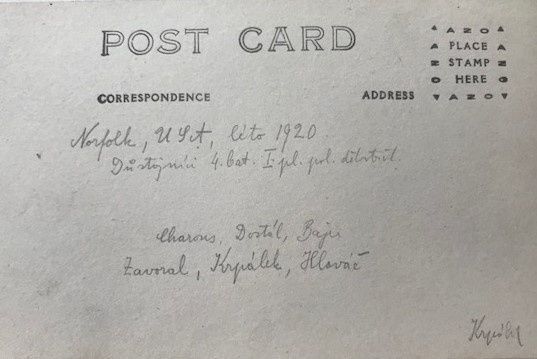 POST CARD
AZO
PLACE
STAMP
HERE
AZO
CORRESPONDENCE ADDRESS
Norfolk, USA, léto 1920.
Důstojníci 4. bat. I. pl. pol. dělostřel.
Charous, Dostál, Bajer
Zavoral, Krpálek, Hlaváč